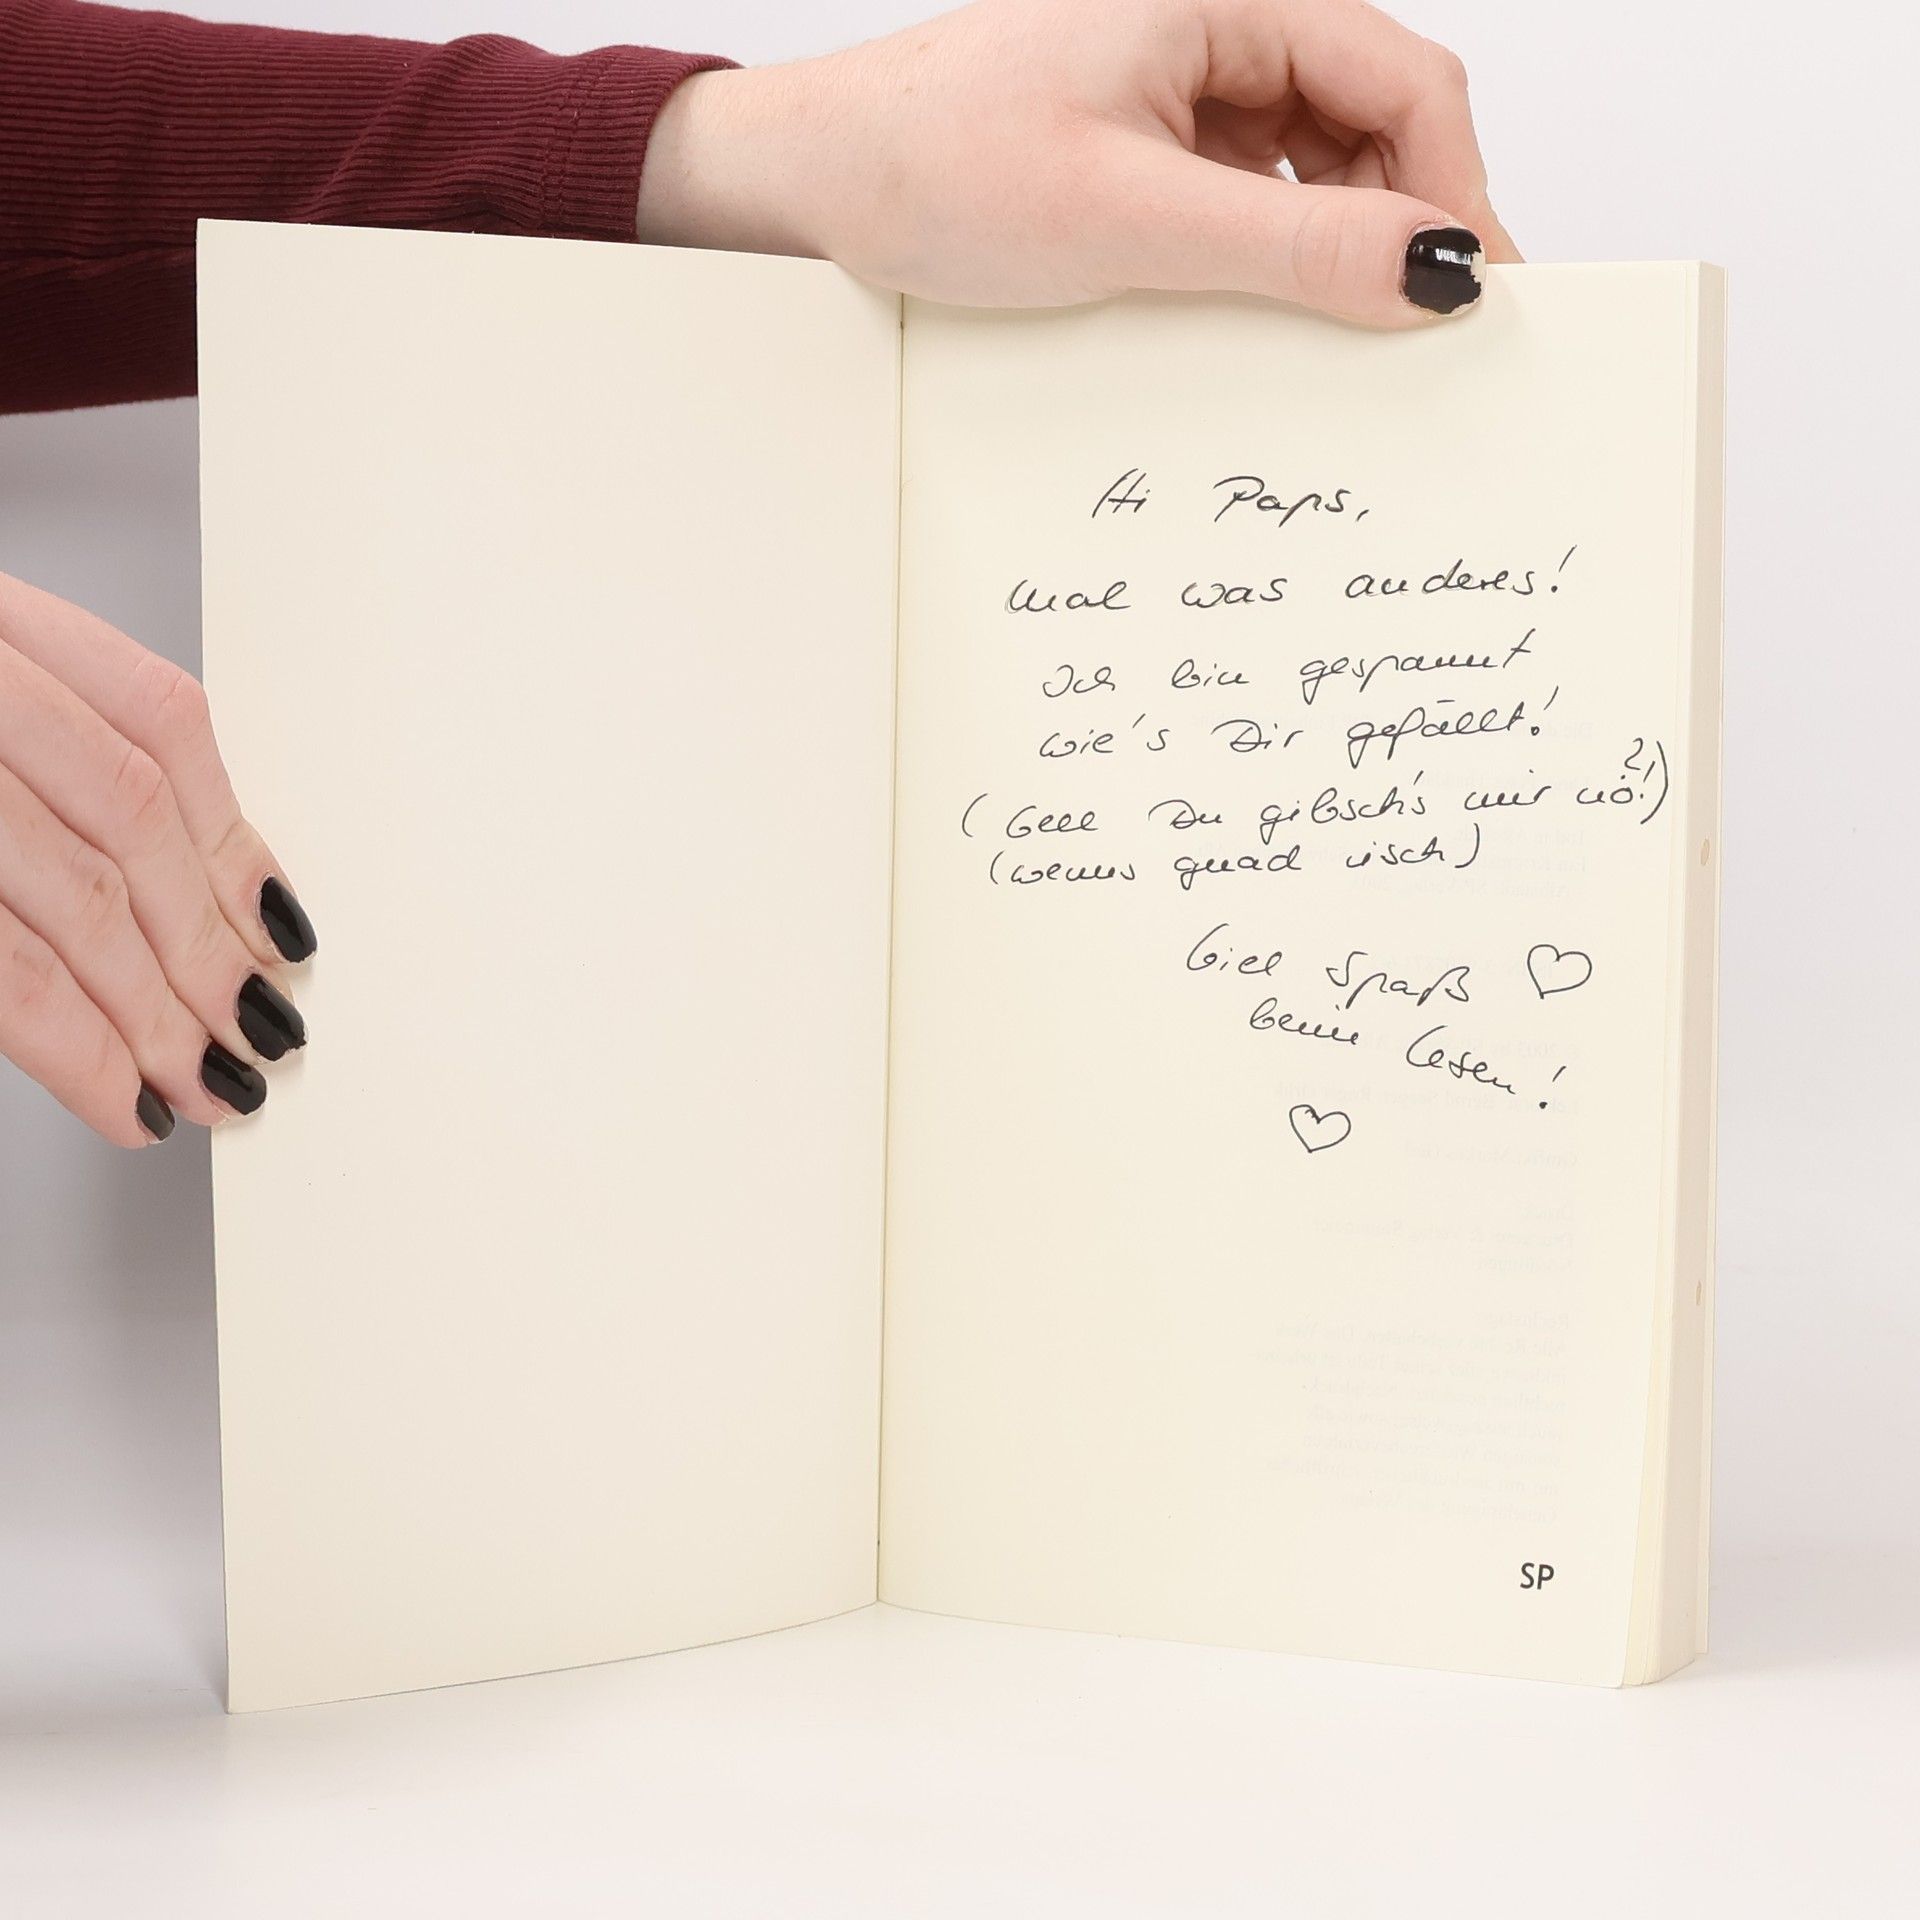 Hi Paps,
mal was anderes!
Ich bin gespannt
wie's Dir gefällt!
(Gell Du gibsch's mir nô?!)
(wenns guad isch)
Viel Spaß ♡
beim Lesen!
♡
SP